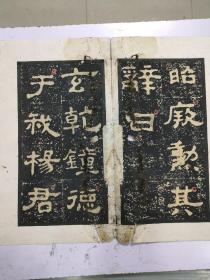 昭厥勳其
辭曰
玄乾鐘德
于我楊君